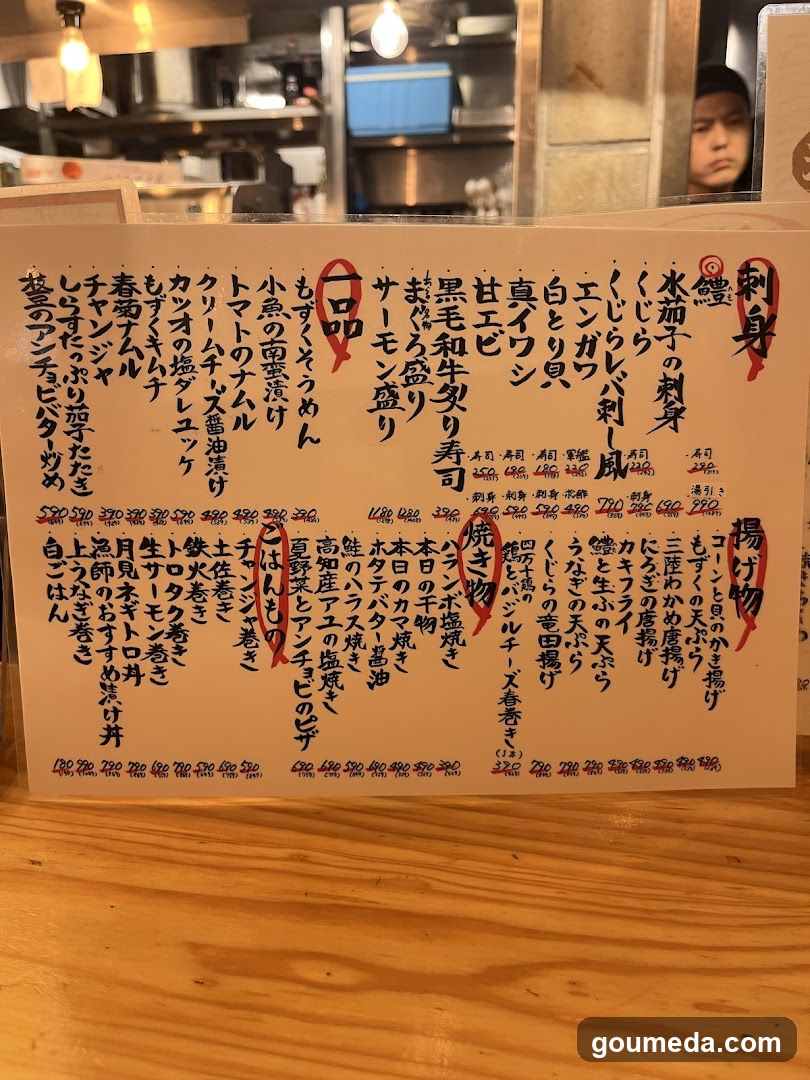 刺身
鱧
水茄子の刺身
くじら
くじらレバ刺し風
エンガワ
白とり貝
真イワシ
甘エビ
黒毛和牛炙り寿司
まぐろ盛り
サーモン盛り
寿司 290
湯引き 990
690
寿司 220
刺身 790
790
軍艦 220
490
寿司 180
刺身 590
寿司 190
刺身 590
寿司 250
刺身 690
390
1280
1180
一品
もずくそうめん
小魚の南蛮漬け
トマトのナムル
クリームチーズ醤油漬け
カツオの塩ダレユッケ
もずくキムチ
春菊ナムル
チャンジャ
しらすたっぷり茄子たたき
枝豆のアンチョビバター炒め
390
490
490
490
590
390
390
390
590
590
揚げ物
コーンと貝のかき揚げ
もずくの天ぷら
三陸わかめ唐揚げ
にろぎの唐揚げ
カキフライ
鱧と生ぶの天ぷら
うなぎの天ぷら
くじらの竜田揚げ
四万十鶏の
鶏とバジルチーズ春巻き(1本)
490
490
490
490
490
790
790
390
焼き物
ハランボ塩焼き
本日の干物
本日のカマ焼き
ホタテバター醤油
鮭のハラス焼き
高知産アユの塩焼き
夏野菜とアンチョビのピザ
390
490
690
590
690
690
ごはんもの
チャンジャ巻き
土佐巻き
鉄火巻き
トロタク巻き
生サーモン巻き
月見ネギトロ丼
漁師のおすすめ漬け丼
上うなぎ巻き
白ごはん
590
690
590
790
690
790
790
990
180
goumeda.com